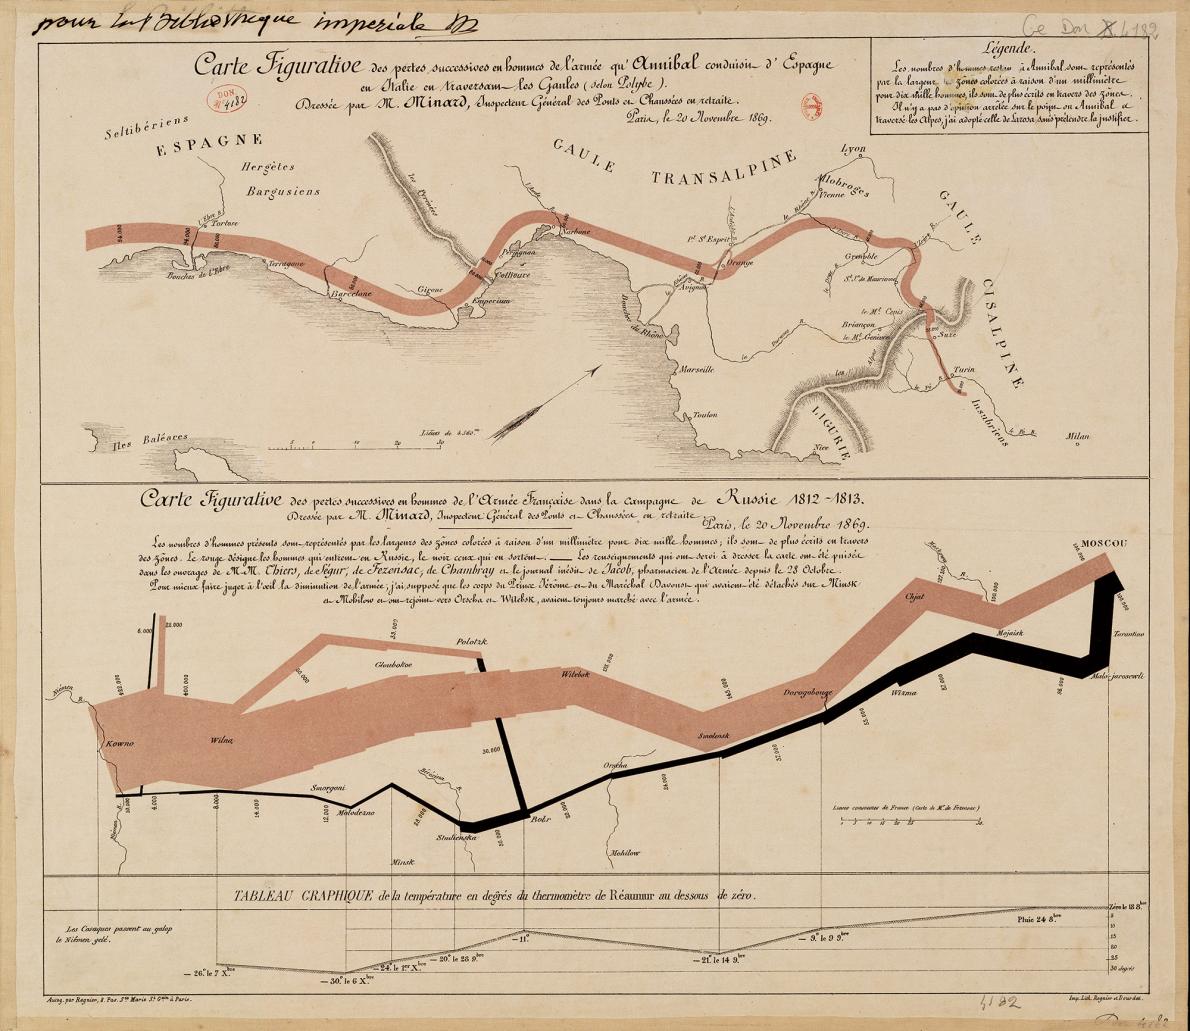 pour la Bibliothèque impériale
Ge Don 4182
Carte Figurative des pertes successives en hommes de l'armée qu'Annibal conduisit d'Espagne
en Italie en traversant les Gaules (selon Polybe).
Dressée par M. Minard, Inspecteur Général des Ponts et Chaussées en retraite.
Paris, le 20 Novembre 1869.
DON
N° 4182
Légende.
Les nombres d'hommes restan à Annibal sont représentés
par la largeur zônes colorées à raison d'un millimètre
pour dix mille hommes, ils sont de plus écrits en travers des zônes.
Il n'y a pas d'opinion arrêtée sur le point où Annibal a
traversé les Alpes, j'ai adopté celle de Larosa sans prétendre la justifier.
Seltibériens
ESPAGNE
Hergètes
Bargusiens
l'Ebre R.
Tortose
Bouches de l'Ebre
Terragone
Barcelone
Girone
Emporium
les Pyrénées
Collioure
Perpignan
l'Aude R.
Narbonne
GAULE TRANSALPINE
Pt. St Esprit
Orange
Avignon
Bouches du Rhône
Marseille
Toulon
Nice
Lyon
Allobroges
Vienne
le Rhône R.
Grenoble
St. Jn de Maurienne
le Mt. Cenis
Briançon
le Mt. Genèvre
les Alpes
LIGURIE
GAULE CISALPINE
Suze
Turin
le Pô R.
Insubriens
Milan
Iles Baléares
5 10 20 30
Carte Figurative des pertes successives en hommes de l'Armée Française dans la campagne de Russie 1812-1813.
Dressée par M. Minard, Inspecteur Général des Ponts et Chaussées en retraite
Paris, le 20 Novembre 1869.
Les nombres d'hommes présents sont représentés par les largeurs des zônes colorées à raison d'un millimètre pour dix mille hommes; ils sont de plus écrits en travers
des zônes. Le rouge désigne les hommes qui entrent en Russie, le noir ceux qui en sortent. Les renseignements qui ont servi à dresser la carte ont été puisés
dans les ouvrages de M.M. Thiers, de Ségur, de Fezensac, de Chambray et le journal inédit de Jacob, pharmacien de l'Armée depuis le 28 Octobre.
Pour mieux faire juger à l'œil la diminution de l'armée, j'ai supposé que les corps du Prince Jérôme et du Maréchal Davoust qui avaient été détachés sur Minsk
et Mohilow et ont rejoint vers Orscha et Witebsk, avaient toujours marché avec l'armée.
MOSCOU
100.000
100.000
Tarantino
Malo-jarosewli
Mojaisk
Chjat
127.100
Wizma
Dorogobouge
Smolensk
145.000
Orscha
Mohilow
Witebsk
Polotzk
33.000
Gloubokoe
30.000
Bobr
Bérézina R.
Studienska
Minsk
Molodezno
Smorgoni
12.000
14.000
8.000
4.000
10.000
Wilna
Kowno
Niémen R.
422.000
400.000
6.000
22.000
Lieues communes de France (Carte de M. de Fezensac)
TABLEAU GRAPHIQUE de la température en degrés du thermomètre de Réaumur au dessous de zéro.
Les Cosaques passent au galop
le Niémen gelé.
— 26.° le 7 Xbre
— 30.° le 6 Xbre
— 24. le 1er Xbre
— 20.° le 28 9bre
— 11.°
— 21.° le 14 9bre
— 9.° le 9 9bre
Pluie 24 8bre
Zéro le 18 8bre
5
10
15
20
25
30 degrés
Autog. par Regnier, 8. Pas. Ste Marie St Gain à Paris.
4182
Imp. Lith. Regnier et Dourdet.